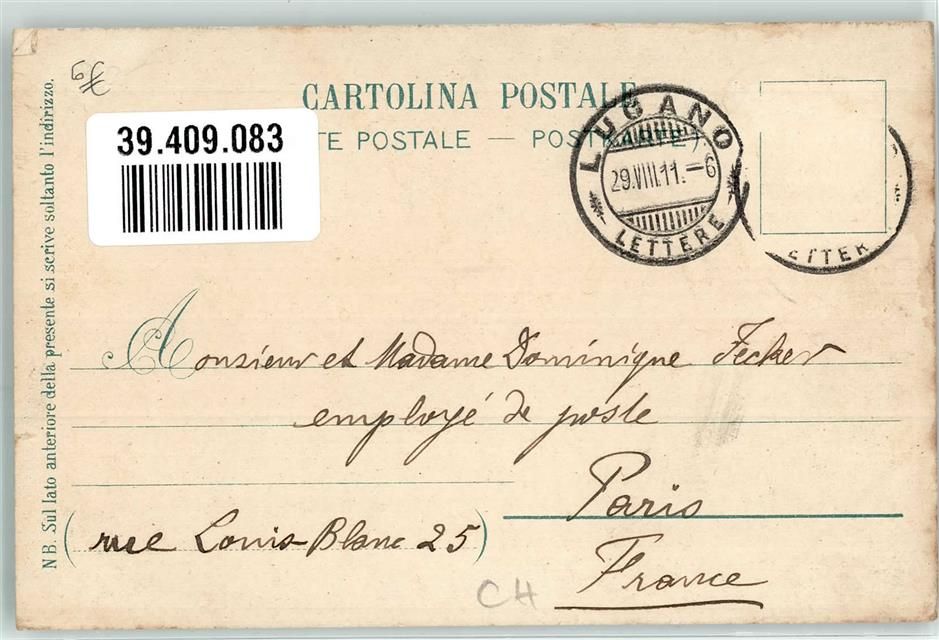 CARTOLINA POSTALE
TE POSTALE — POSTKARTE).
39.409.083
LUGANO
29.VIII.11.-6
LETTERE
ETTER
N B. Sul lato anteriore della presente si scrive soltanto l'indirizzo.
Monsieur et Madame Dominique Fecker
employé de poste
Paris
(rue Louis Blanc 25)
France
CH